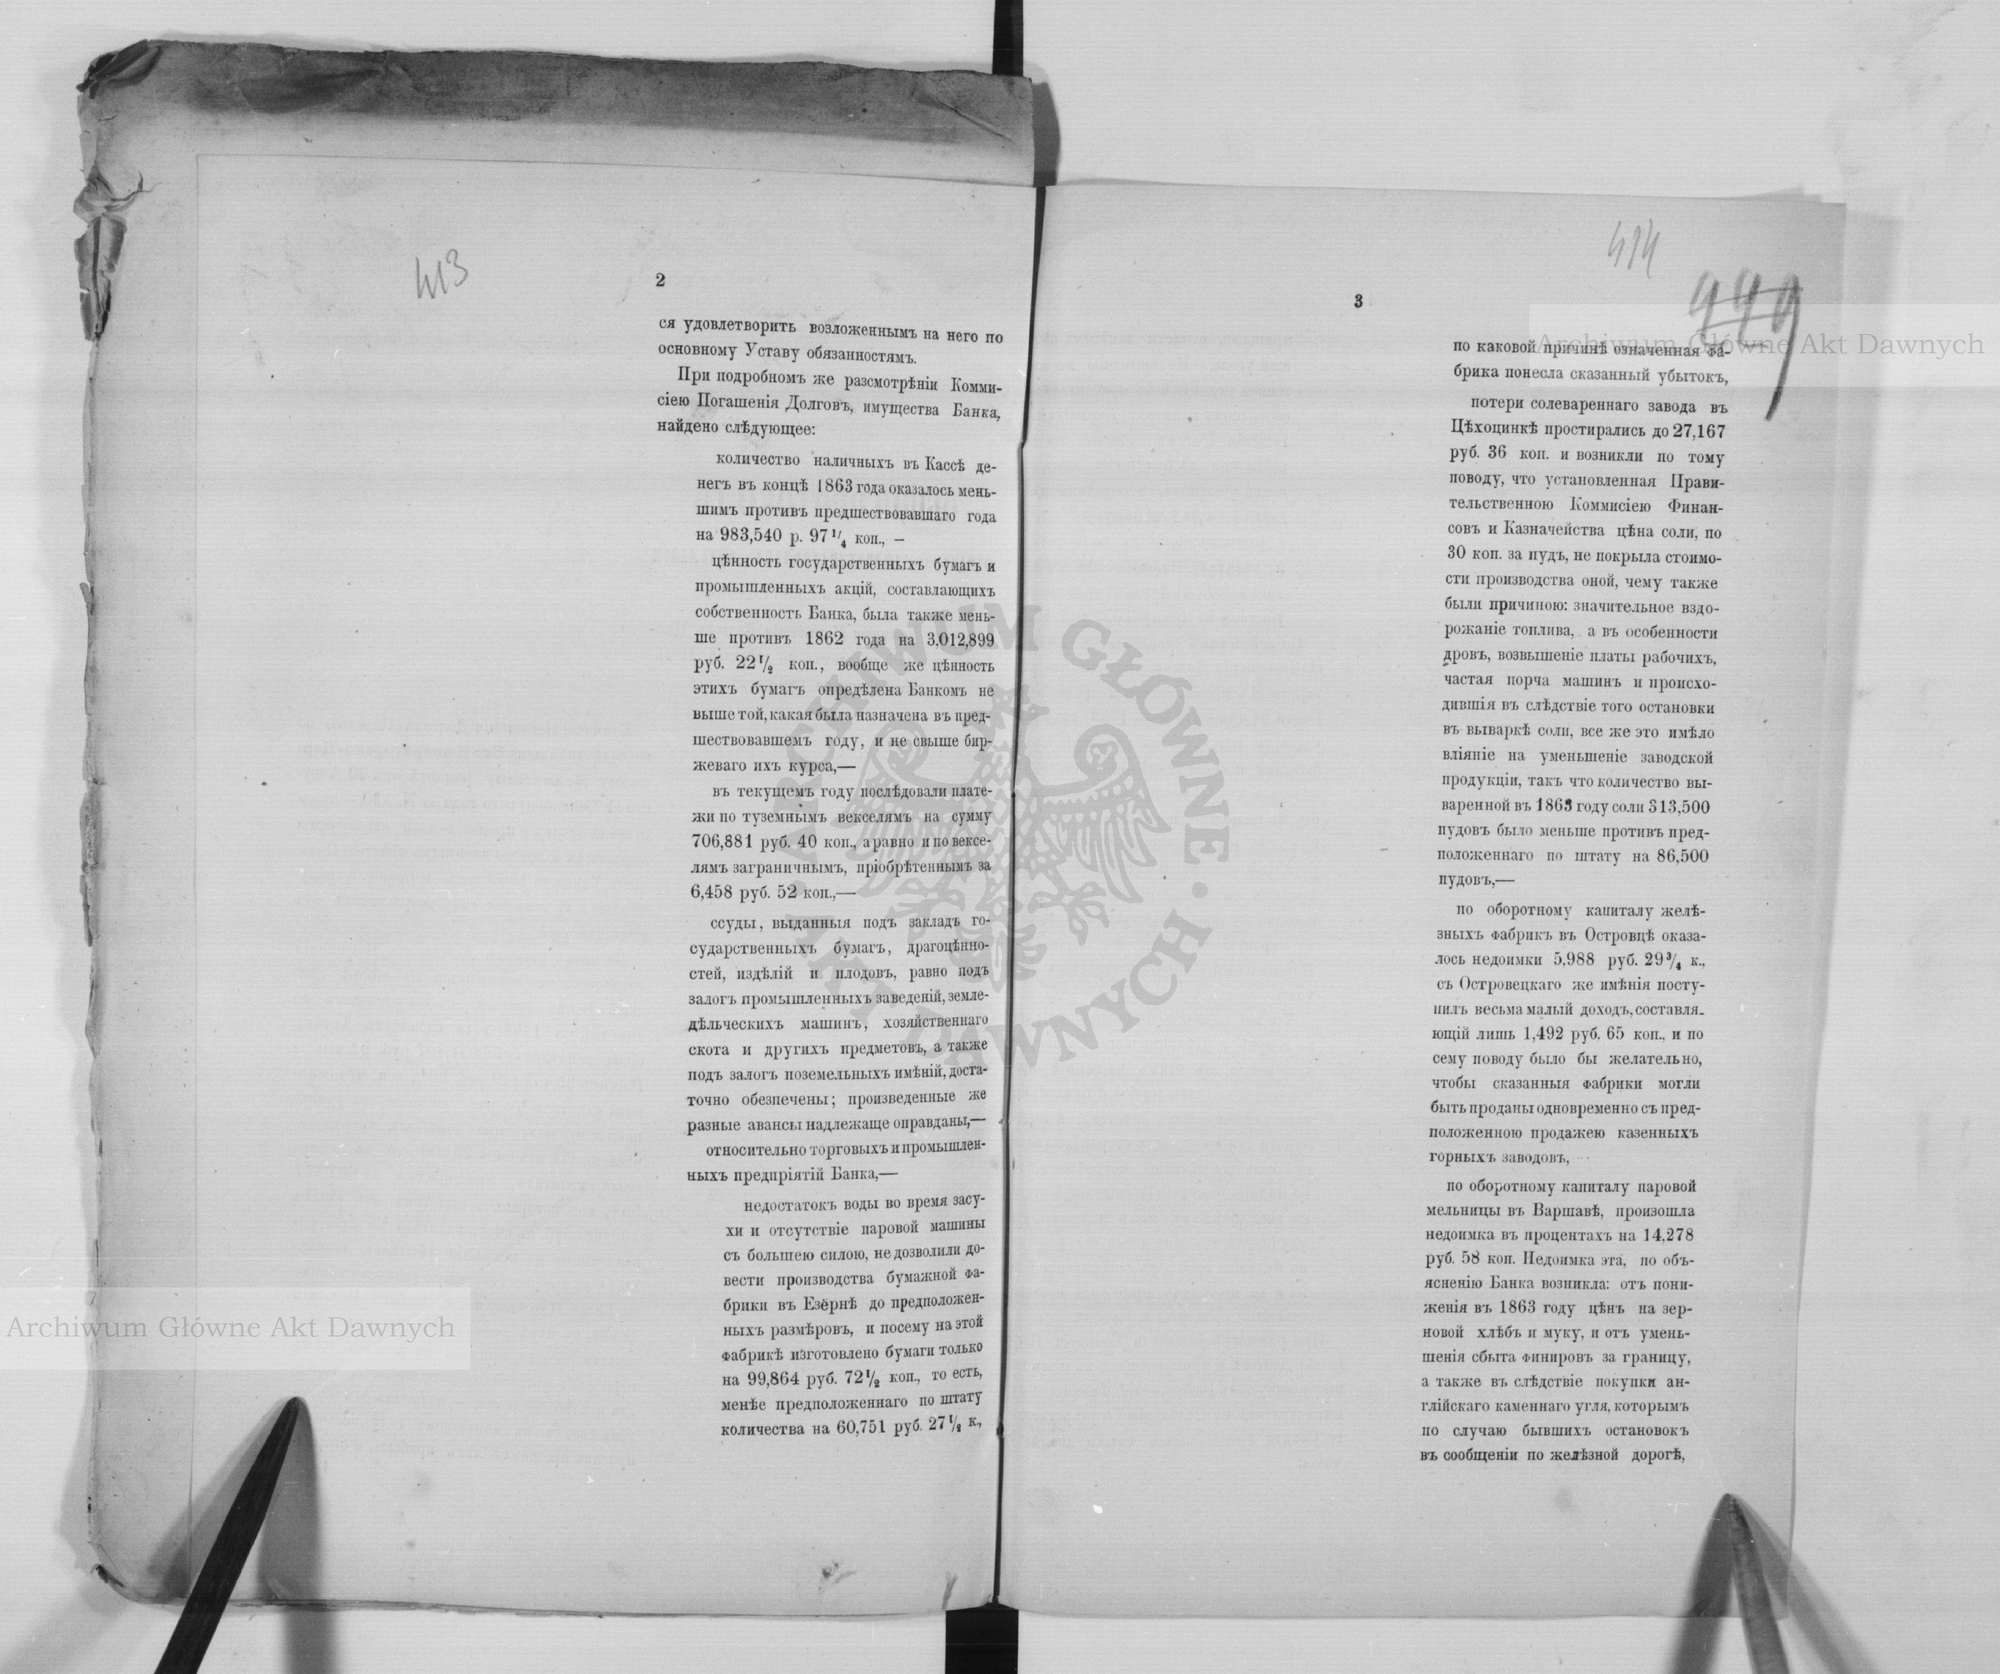 413
2
ся удовлетворить возложеннымъ на него по
основному Уставу обязанностямъ.
При подробномъ же разсмотрѣніи Комми-
сіею Погашенія Долговъ, имущества Банка,
найдено слѣдующее:
количество наличныхъ въ Кассѣ де-
негъ въ концѣ 1863 года оказалось мень-
шимъ противъ предшествовавшаго года
на 983,540 р. 97 1/4 коп., —
цѣнность государственныхъ бумагъ и
промышленныхъ акцій, составляющихъ
собственность Банка, была также мень-
ше противъ 1862 года на 3,012,899
руб. 22 1/2 коп., вообще же цѣнность
этихъ бумагъ опредѣлена Банкомъ не
выше той, какая была назначена въ пред-
шествовавшемъ году, и не свыше бир-
жеваго ихъ курса,—
въ текущемъ году послѣдовали плате-
жи по туземнымъ векселямъ на сумму
706,881 руб. 40 коп., а равно и по вексе-
лямъ заграничнымъ, пріобрѣтеннымъ за
6,458 руб. 52 коп.,—
ссуды, выданныя подъ закладъ го-
сударственныхъ бумагъ, драгоцѣнно-
стей, издѣлій и плодовъ, равно подъ
залогъ промышленныхъ заведеній, земле-
дѣльческихъ машинъ, хозяйственнаго
скота и другихъ предметовъ, а также
подъ залогъ поземельныхъ имѣній, доста-
точно обезпечены; произведенные же
разные авансы надлежаще оправданы,—
относительно торговыхъ и промышлен-
ныхъ предпріятій Банка,—
недостатокъ воды во время засу-
хи и отсутствіе паровой машины
съ большею силою, не дозволили до-
вести производства бумажной фа-
брики въ Езёрнѣ до предположен-
ныхъ размѣровъ, и посему на этой
фабрикѣ изготовлено бумаги только
на 99,864 руб. 72 1/2 коп., то есть,
менѣе предположеннаго по штату
количества на 60,751 руб. 27 1/2 к.,
414
449
3
по каковой причинѣ означенная фа-
брика понесла сказанный убытокъ,
потери солевареннаго завода въ
Цѣхоцинкѣ простирались до 27,167
руб. 36 коп. и возникли по тому
поводу, что установленная Прави-
тельственною Коммисіею Финан-
совъ и Казначейства цѣна соли, по
30 коп. за пудъ, не покрыла стоимо-
сти производства оной, чему также
были причиною: значительное вздо-
рожаніе топлива, а въ особенности
дровъ, возвышеніе платы рабочихъ,
частая порча машинъ и происхо-
дившія въ слѣдствіе того остановки
въ вываркѣ соли, все же это имѣло
вліяніе на уменьшеніе заводской
продукціи, такъ что количество вы-
варенной въ 1863 году соли 313,500
пудовъ было меньше противъ пред-
положеннаго по штату на 86,500
пудовъ,—
по оборотному капиталу желѣ-
зныхъ фабрикъ въ Островцѣ оказа-
лось недоимки 5,988 руб. 29 3/4 к.,
съ Островецкаго же имѣнія посту-
пилъ весьма малый доходъ, составля-
ющій лишь 1,492 руб. 65 коп., и по
сему поводу было бы желательно,
чтобы сказанныя фабрики могли
быть проданы одновременно съ пред-
положенною продажею казенныхъ
горныхъ заводовъ, —
по оборотному капиталу паровой
мельницы въ Варшавѣ, произошла
недоимка въ процентахъ на 14,278
руб. 58 коп. Недоимка эта, по объ-
ясненію Банка возникла: отъ пони-
женія въ 1863 году цѣнъ на зер-
новой хлѣбъ и муку, и отъ умень-
шенія сбыта финировъ за границу,
а также въ слѣдствіе покупки ан-
глійскаго каменнаго угля, которымъ
по случаю бывшихъ остановокъ
въ сообщеніи по желѣзной дорогѣ,
Archiwum Główne Akt Dawnych
Archiwum Główne Akt Dawnych
ARCHIWUM GŁÓWNE · AKT DAWNYCH ·